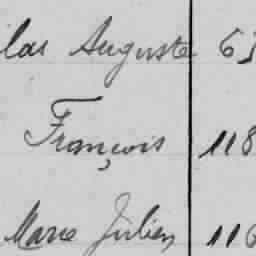 las Auguste 63
François 118
Marie Julien 116